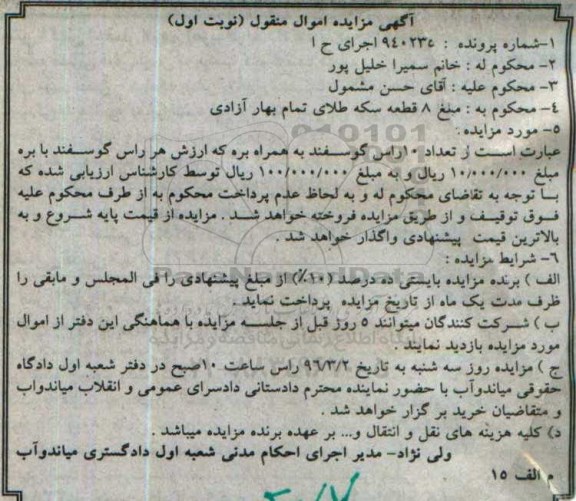 آگهی مزایده اموال منقول (نوبت اول)
۱-شماره پرونده : ۹۴۰۲۳۵ اجرای ح ا
۲- محکوم له : خانم سمیرا خلیل پور
۳- محکوم علیه : آقای حسن مشمول
۴- محکوم به : مبلغ ۸ قطعه سکه طلای تمام بهار آزادی
۵- مورد مزایده :
عبارت است ز تعداد ۱۰راس گوسفند به همراه بره که ارزش هر راس گوسفند با بره
مبلغ ۱۰/۰۰۰/۰۰۰ ریال و به مبلغ ۱۰۰/۰۰۰/۰۰۰ ریال توسط کارشناس ارزیابی شده که
با توجه به تقاضای محکوم له و به لحاظ عدم پرداخت محکوم به از طرف محکوم علیه
فوق توقیف و از طریق مزایده فروخته خواهد شد . مزایده از قیمت پایه شروع و به
بالاترین قیمت پیشنهادی واگذار خواهد شد .
۶- شرایط مزایده :
الف ) برنده مزایده بایستی ده درصد (۱۰٪) از مبلغ پیشنهادی را فی المجلس و مابقی را
ظرف مدت یک ماه از تاریخ مزایده پرداخت نماید .
ب ) شرکت کنندگان میتوانند ۵ روز قبل از جلسه مزایده با هماهنگی این دفتر از اموال
مورد مزایده بازدید نمایند .
ج ) مزایده روز سه شنبه به تاریخ ۹۶/۳/۲ راس ساعت ۱۰صبح در دفتر شعبه اول دادگاه
حقوقی میاندوآب با حضور نماینده محترم دادستانی دادسرای عمومی و انقلاب میاندواب
و متقاضیان خرید بر گزار خواهد شد .
د) کلیه هزینه های نقل و انتقال و... بر عهده برنده مزایده میباشد .
ولی نژاد- مدیر اجرای احکام مدنی شعبه اول دادگستری میاندوآب
م الف ۱۵